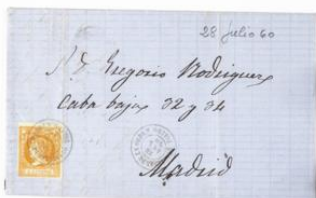 28 julio 60
S. D. Gregorio Rodriguez
Caba baja 32 y 34
Madrid